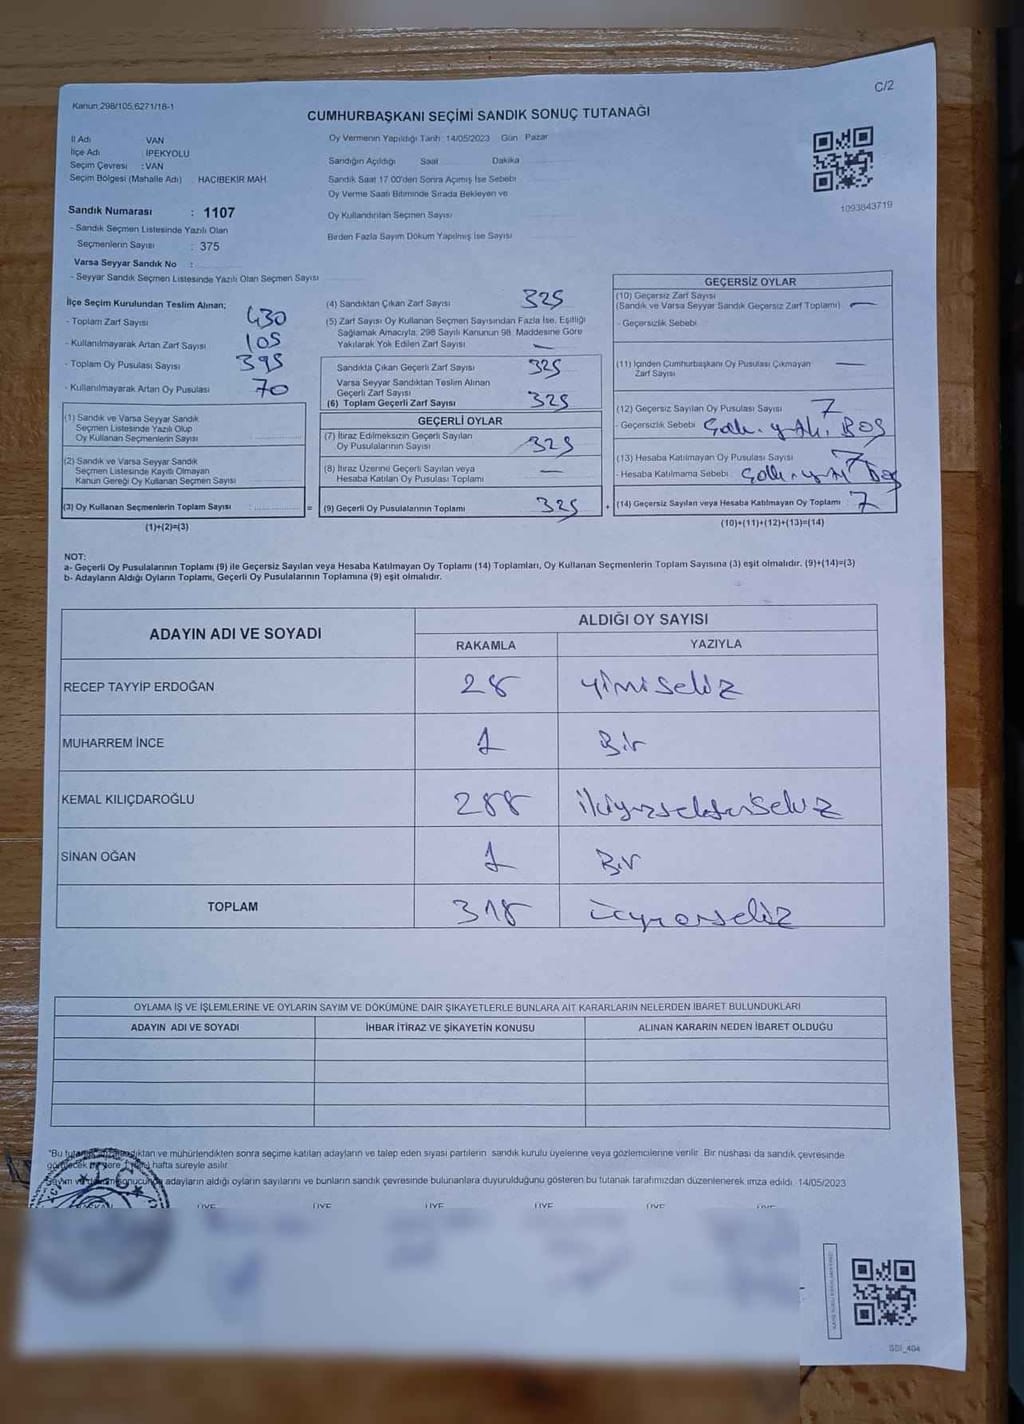 Kanun 298/105,6271/18-1
C/2
CUMHURBAŞKANI SEÇİMİ SANDIK SONUÇ TUTANAĞI
İl Adı VAN
İlçe Adı : İPEKYOLU
Seçim Çevresi : VAN
Seçim Bölgesi (Mahalle Adı) HACIBEKİR MAH.
Oy Vermenin Yapıldığı Tarih: 14/05/2023 Gün Pazar
Sandığın Açıldığı Saat Dakika
Sandık Saat 17.00'den Sonra Açılmış İse Sebebi
Oy Verme Saati Bitiminde Sırada Bekleyen ve
Oy Kullandırılan Seçmen Sayısı
Birden Fazla Sayım Döküm Yapılmış İse Sayısı
1093843719
Sandık Numarası : 1107
- Sandık Seçmen Listesinde Yazılı Olan
Seçmenlerin Sayısı : 375
Varsa Seyyar Sandık No :
- Seyyar Sandık Seçmen Listesinde Yazılı Olan Seçmen Sayısı
İlçe Seçim Kurulundan Teslim Alınan;
- Toplam Zarf Sayısı 430
- Kullanılmayarak Artan Zarf Sayısı 105
- Toplam Oy Pusulası Sayısı 395
- Kullanılmayarak Artan Oy Pusulası 70
(1) Sandık ve Varsa Seyyar Sandık
Seçmen Listesinde Yazılı Olup
Oy Kullanan Seçmenlerin Sayısı
(2) Sandık ve Varsa Seyyar Sandık
Seçmen Listesinde Kayıtlı Olmayan
Kanun Gereği Oy Kullanan Seçmen Sayısı
(3) Oy Kullanan Seçmenlerin Toplam Sayısı
(1)+(2)=(3)
(4) Sandıktan Çıkan Zarf Sayısı 325
(5) Zarf Sayısı Oy Kullanan Seçmen Sayısından Fazla İse, Eşitliği
Sağlamak Amacıyla; 298 Sayılı Kanunun 98. Maddesine Göre
Yakılarak Yok Edilen Zarf Sayısı —
Sandıkta Çıkan Geçerli Zarf Sayısı 325
Varsa Seyyar Sandıktan Teslim Alınan
Geçerli Zarf Sayısı
(6) Toplam Geçerli Zarf Sayısı 325
GEÇERLİ OYLAR
(7) İtiraz Edilmeksizin Geçerli Sayılan
Oy Pusulalarının Sayısı 325
(8) İtiraz Üzerine Geçerli Sayılan veya
Hesaba Katılan Oy Pusulası Toplamı —
= (9) Geçerli Oy Pusulalarının Toplamı 325 +
GEÇERSİZ OYLAR
(10) Geçersiz Zarf Sayısı
(Sandık ve Varsa Seyyar Sandık Geçersiz Zarf Toplamı) —
- Geçersizlik Sebebi
(11) İçinden Cumhurbaşkanı Oy Pusulası Çıkmayan
Zarf Sayısı —
(12) Geçersiz Sayılan Oy Pusulası Sayısı 7
- Geçersizlik Sebebi BOŞ
(13) Hesaba Katılmayan Oy Pusulası Sayısı 7
- Hesaba Katılmama Sebebi Boş
(14) Geçersiz Sayılan veya Hesaba Katılmayan Oy Toplamı 7
(10)+(11)+(12)+(13)=(14)
NOT:
a- Geçerli Oy Pusulalarının Toplamı (9) ile Geçersiz Sayılan veya Hesaba Katılmayan Oy Toplamı (14) Toplamları, Oy Kullanan Seçmenlerin Toplam Sayısına (3) eşit olmalıdır. (9)+(14)=(3)
b- Adayların Aldığı Oyların Toplamı, Geçerli Oy Pusulalarının Toplamına (9) eşit olmalıdır.
ADAYIN ADI VE SOYADI
ALDIĞI OY SAYISI
RAKAMLA YAZIYLA
RECEP TAYYİP ERDOĞAN 28 yimisekiz
MUHARREM İNCE 1 Bir
KEMAL KILIÇDAROĞLU 288 ikiyüzseksensekiz
SİNAN OĞAN 1 Bir
TOPLAM 318 üçyüzonsekiz
OYLAMA İŞ VE İŞLEMLERİNE VE OYLARIN SAYIM VE DÖKÜMÜNE DAİR ŞİKAYETLERLE BUNLARA AİT KARARLARIN NELERDEN İBARET BULUNDUKLARI
ADAYIN ADI VE SOYADI İHBAR İTİRAZ VE ŞİKAYETİN KONUSU ALINAN KARARIN NEDEN İBARET OLDUĞU
ve mühürlendikten sonra seçime katılan adayların ve talep eden siyasi partilerin sandık kurulu üyelerine veya gözlemcilerine verilir. Bir nüshası da sandık çevresinde
hafta süreyle asılır.
adayların aldığı oyların sayılarını ve bunların sandık çevresinde bulunanlara duyurulduğunu gösteren bu tutanak tarafımızdan düzenlenerek imza edildi. 14/05/2023
ÜYE ÜYE ÜYE ÜYE ÜYE ÜYE